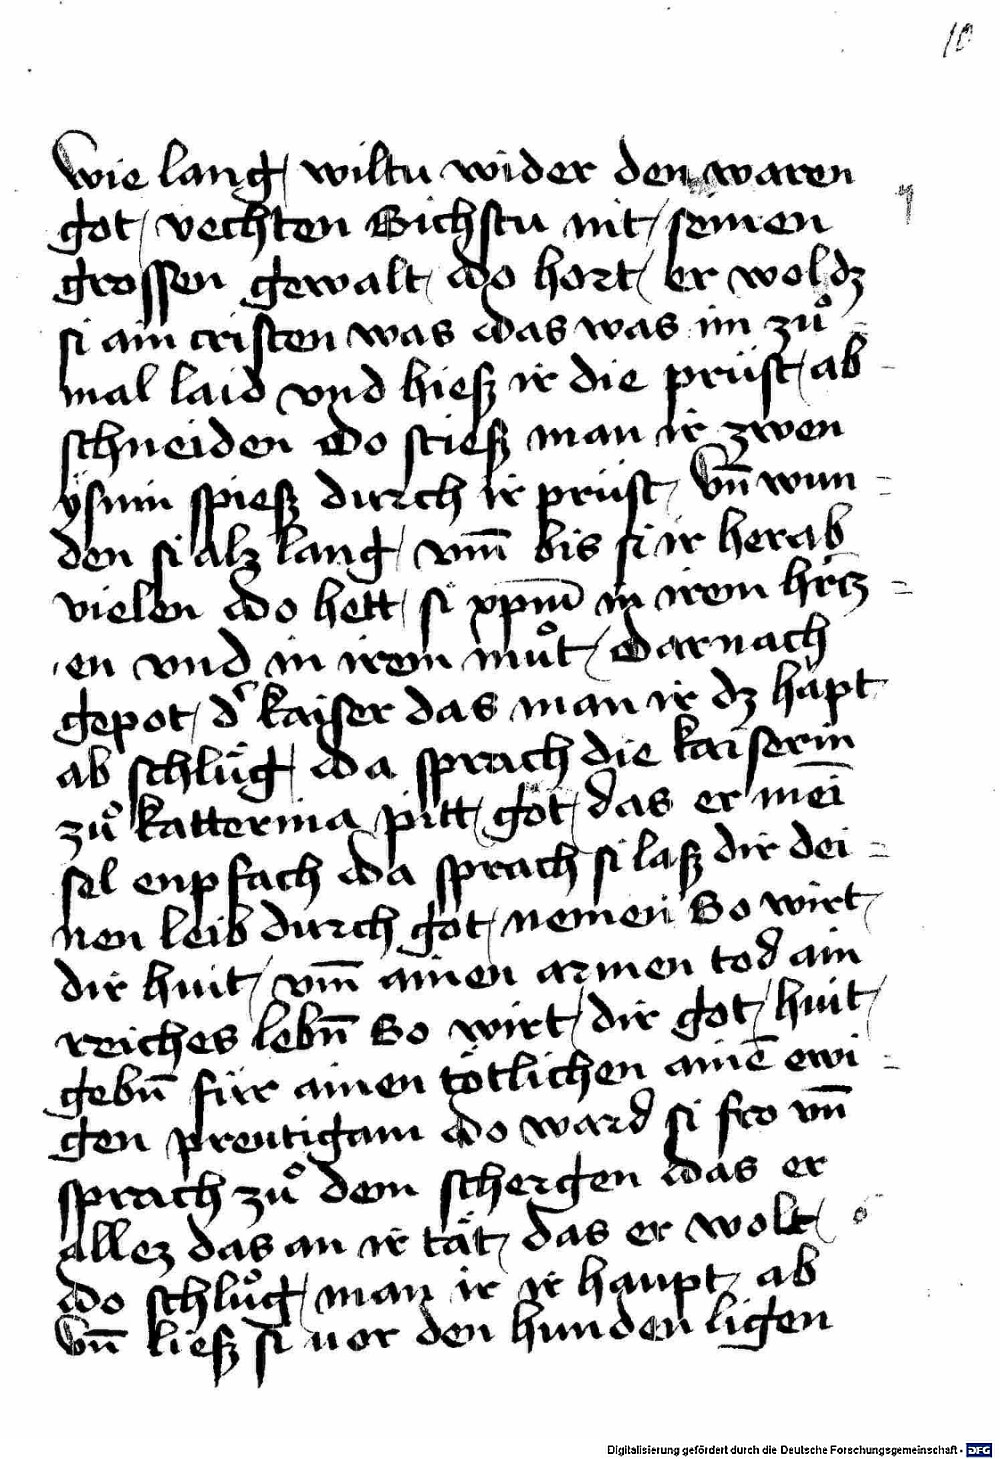 10
wie lang / wiltu wider den waren
got / vechten Sichstu nit / seinen
grossen gewalt / do hort / er wol dz
si ain cristen was das was im zuͦ
mal laid vnd hieß ir die prüst / ab
schneiden do stieß man ir zwen
ÿsnin spieß durch ir prüst / Vn̄ wun =
den si alz lang / vm̄ bis si ir herab
vielen do hett / si xpm̄ in irem hrͤtz =
en vnd in irem muͦt / Darnach
gepot / d' kaiser das man ir dz hapt
ab schluͤg / da sprach die kaiserin
zuͦ katterina pitt / got / das er meī
sel enpfach da sprach si laß dir dei =
nen leib durch got / nemen So wirt /
dir huit / vm̄ ainen armen tod ain
reiches lebn̄ So wirt / dir got / huit /
gebn̄ für ainen tötlichen ainē ewi =
gen preutigam do ward si fro vn̄
sprach zuͦ dem schergen das er
allez das an ir tät / das er wolt /
do schluͦg / man ir ir haupt / ab
Vn̄ ließ si vor den hunden ligen
Digitalisierung gefördert durch die Deutsche Forschungsgemeinschaft - DFG